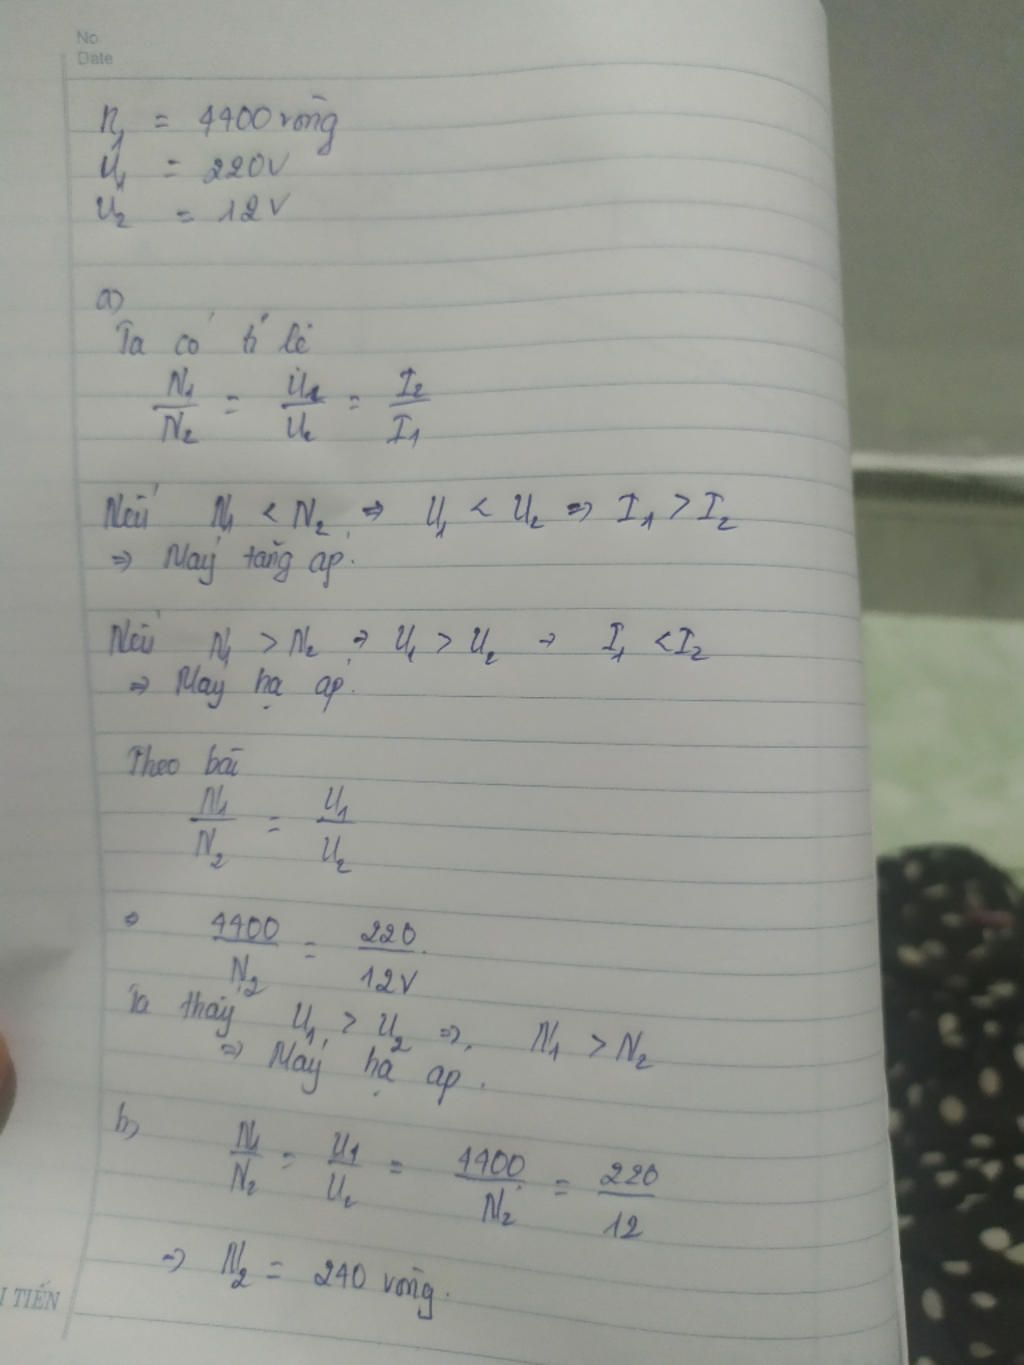 No.
Date
n₁ = 4400 vòng
U₁ = 220V
U₂ = 12V
a)
Ta có tỉ lệ
N₁/N₂ = U₁/U₂ = I₂/I₁
Nếu N₁ < N₂ ⇒ U₁ < U₂ ⇒ I₁ > I₂
⇒ Máy tăng áp.
Nếu N₁ > N₂ ⇒ U₁ > U₂ → I₁ < I₂
⇒ Máy hạ áp.
Theo bài
N₁/N₂ = U₁/U₂
⇒ 4400/N₂ = 220/12V
Ta thấy U₁ > U₂ ⇒ N₁ > N₂
⇒ Máy hạ áp.
b)
N₁/N₂ = U₁/U₂ = 4400/N₂ = 220/12
⇒ N₂ = 240 vòng.
I TIẾN